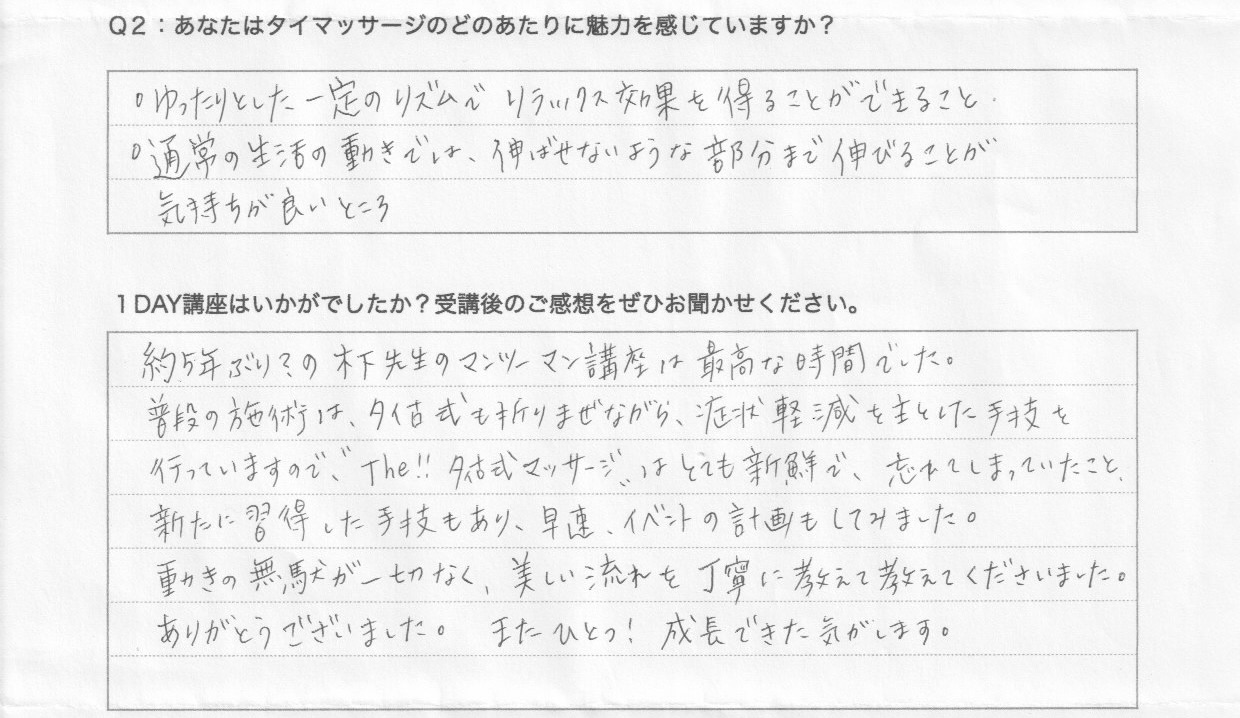 Q2：あなたはタイマッサージのどのあたりに魅力を感じていますか？
○ゆったりとした一定のリズムでリラックス効果を得ることができること.
○通常の生活の動きでは、伸ばせないような部分まで伸びることが
気持ちが良いところ
1DAY講座はいかがでしたか？受講後のご感想をぜひお聞かせください。
約5年ぶり？の木下先生のマンツーマン講座は最高な時間でした。
普段の施術は、タイ古式も折りまぜながら、症状軽減を主とした手技を
行っていますので、〝The!! タイ古式マッサージ〟はとても新鮮で、忘れてしまっていたこと、
新たに習得した手技もあり、早速、イベントの計画もしてみました。
動きの無駄が一切なく、美しい流れを丁寧に教えて教えてくださいました。
ありがとうございました。 またひとつ！ 成長できた気がします。